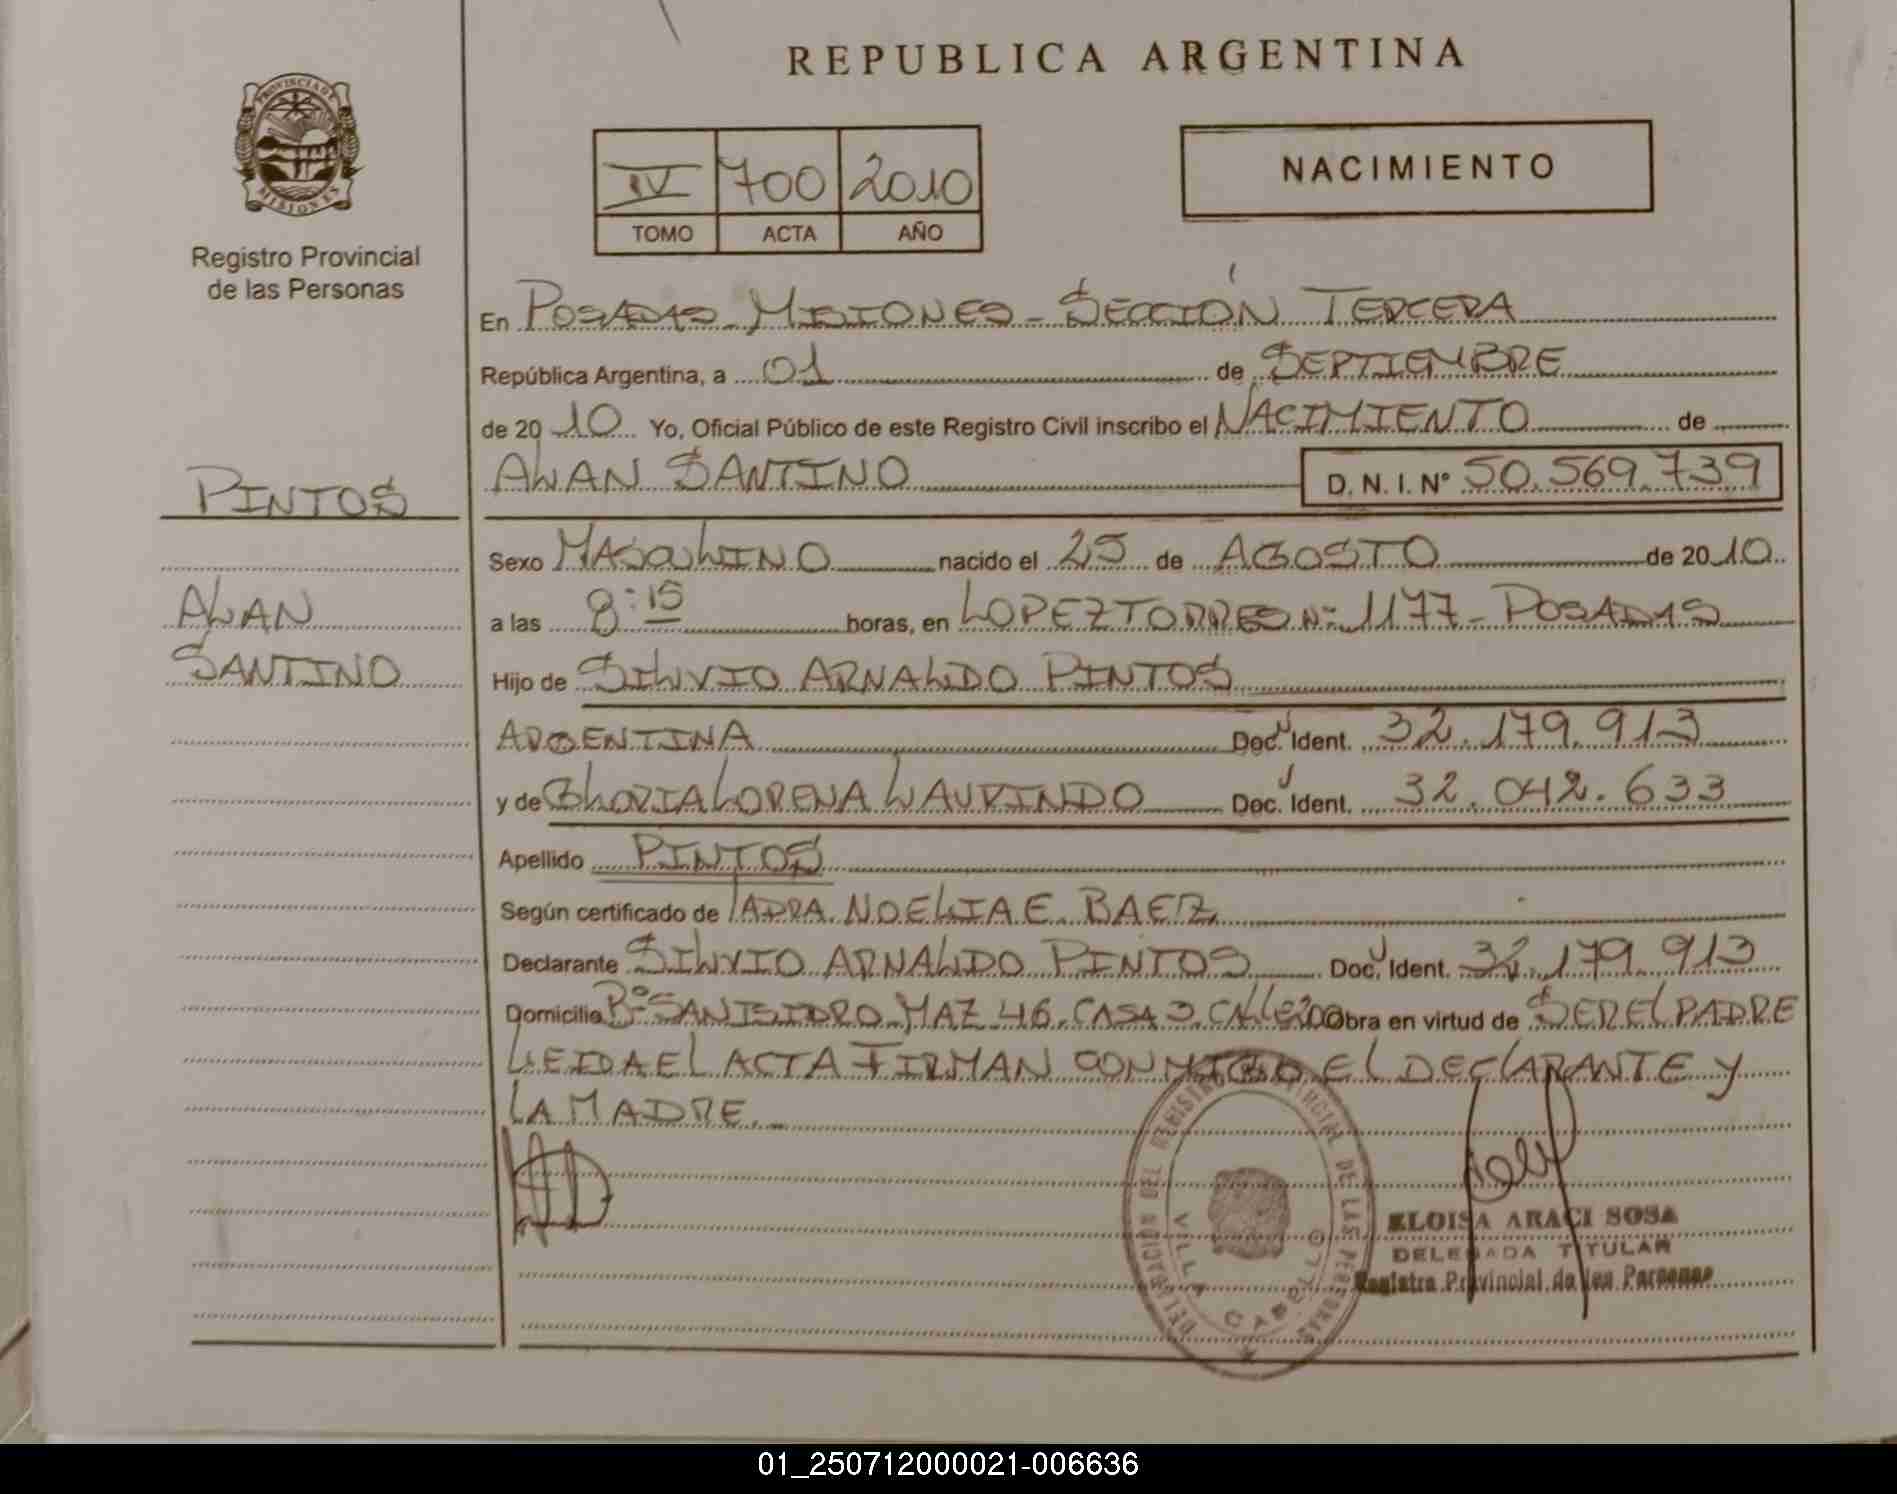 REPUBLICA ARGENTINA
PROVINCIA DE MISIONES
Registro Provincial
de las Personas
IV 700 2010
TOMO ACTA AÑO
NACIMIENTO
En POSADAS MISIONES - SECCIÓN TERCERA
República Argentina, a 01 de SEPTIEMBRE
de 2010 Yo, Oficial Público de este Registro Civil inscribo el NACIMIENTO de
ALAN SANTINO D. N. I. Nº 50.569.739
PINTOS
Sexo MASCULINO nacido el 25 de AGOSTO de 2010
ALAN
a las 8:15 horas, en LOPEZ TORRES Nº 1177 - POSADAS
SANTINO
Hijo de SILVIO ARNALDO PINTOS
ARGENTINA Doc. Ident. 32.179.913
y de GLORIA LORENA LAURINDO Doc. Ident. 32.042.633
Apellido PINTOS
Según certificado de NOELIA E. BAEZ
Declarante SILVIO ARNALDO PINTOS Doc. Ident. 32.179.913
Domicilio Bº SAN ISIDRO MAZ 46. CASA 3. CALLE 200 Obra en virtud de SER EL PADRE
LEIDA EL ACTA FIRMAN CONMIGO EL DECLARANTE Y
LA MADRE.
DELEGACION DEL REGISTRO PROVINCIAL DE LAS PERSONAS
VILLA CABELLO
ELOISA ARACI SOSA
DELEGADA TITULAR
Registro Provincial de las Personas
01_250712000021-006636